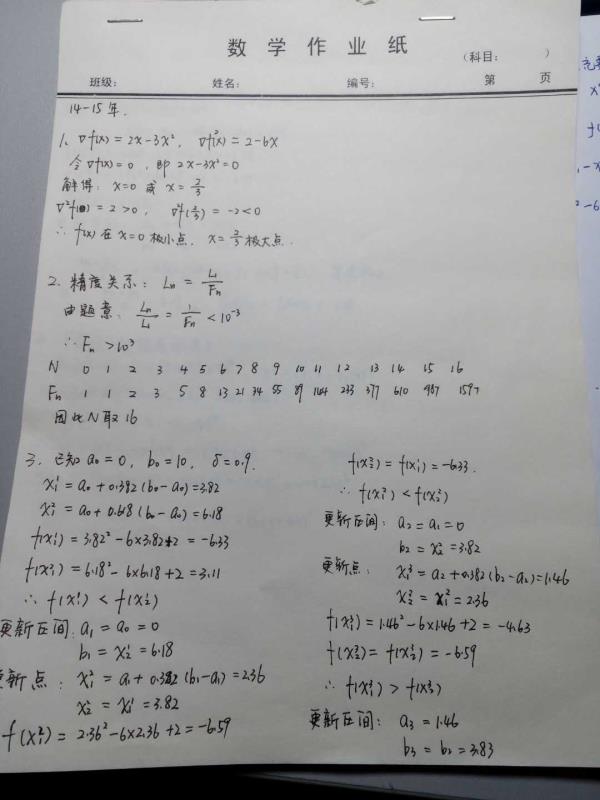 数学作业纸
(科目: )
班级: 姓名: 编号: 第 页
14-15年.
1、∇f(x)=2x-3x², ∇²f(x)=2-6x
令∇f(x)=0,即2x-3x²=0
解得: x=0 或 x=2/3
∇²f(0)=2>0, ∇²f(2/3)=-2<0
∴ f(x)在x=0极小点, x=2/3极大点.
2、精度关系: Ln = L1/Fn
由题意: Ln/L1 = 1/Fn < 10⁻³
∴ Fn >10³
N 0 1 2 3 4 5 6 7 8 9 10 11 12 13 14 15 16
Fn 1 1 2 3 5 8 13 21 34 55 89 144 233 377 610 987 1597
因此N取16
3、已知 a₀=0, b₀=10, δ=0.9.
x₁¹=a₀+0.382(b₀-a₀)=3.82
x₁²=a₀+0.618(b₀-a₀)=6.18
f(x₁¹)=3.82²-6×3.82+2=-6.33
f(x₂¹)=6.18²-6×6.18+2=3.11
∴ f(x₁¹)<f(x₂¹)
更新区间: a₁=a₀=0
b₁=x₂¹=6.18
更新点: x₁²=a₁+0.382(b₁-a₁)=2.36
x₂²=x₁¹=3.82
f(x₁²)=2.36²-6×2.36+2=-6.59
f(x₂²)=f(x₁¹)=-6.33.
∴ f(x₁²)<f(x₂²)
更新区间: a₂=a₁=0
b₂=x₂²=3.82
更新点: x₁³=a₂+0.382(b₂-a₂)=1.46
x₂³=x₁²=2.36
f(x₁³)=1.46²-6×1.46+2=-4.63
f(x₂³)=f(x₁²)=-6.59
∴ f(x₁³)>f(x₂³)
更新区间: a₃=1.46
b₃=b₂=3.83